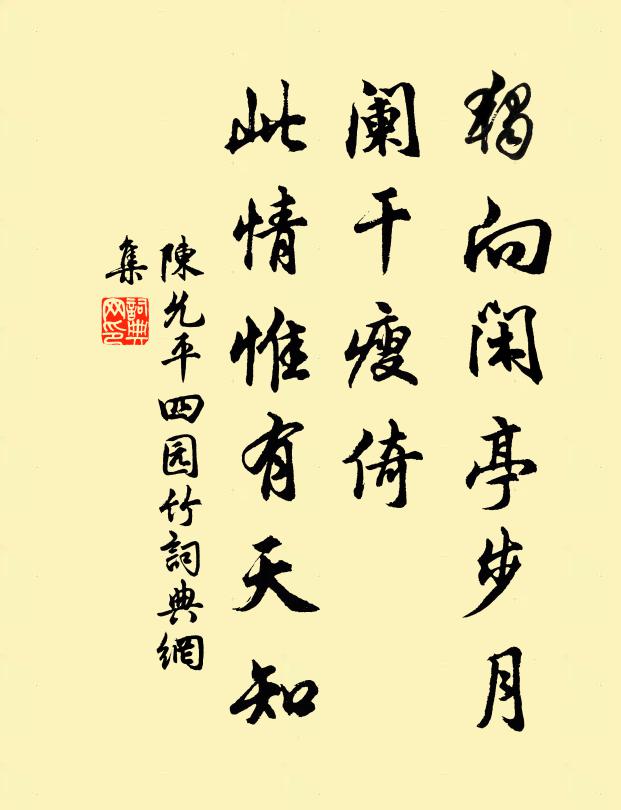 獨向閑亭步月
闌干瘦倚
此情惟有天知
陳允平四园竹詞典網
集
詞典网印